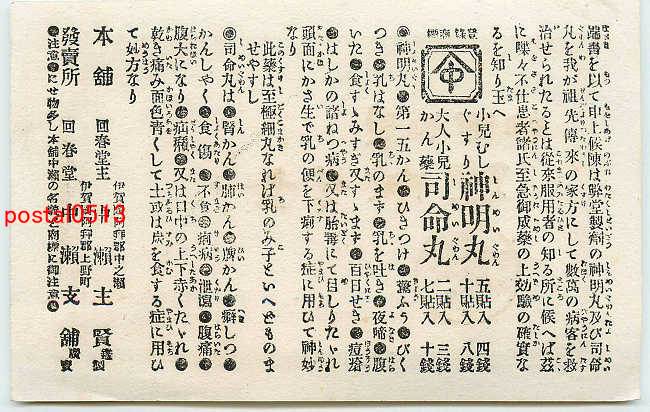 端書を以て申上候陳は弊堂製劑の神明丸及ひ司命
丸を我が祖先傳來の家方にして數萬の病客を救
治せられたるとは從來服用者の知る所に候へば茲
に喋々不仕患者諸氏至急御成藥の上効驗の確實な
るを知り玉へ
登錄商標
中
小兒むし
ぐすり
神明丸
五貼入 四錢
十貼入 八錢
大人小兒
かん藥
司命丸
二貼入 三錢
七貼入 十錢
●神明丸●第一五かん●ひきつけ●驚ふう●びく
つき●乳はなし●乳のまず●乳を吐き●夜啼●腹
いた●食すゝみすぎ又すゝまず●百日せき●痘瘡
●はしかの諸ねつ病●又は胎毒にて目しりたゞれ
頭面にかさ生で乳の便を下痢する症に用ひて神妙
なり
此藥は至極細丸なれば乳のみ子といへどものま
せやすし
●司命丸は●腎かん●肺かん●脾かん●癖しつ●
かんしやく●食傷●不食●痢病●泄瀉●腹痛●
腹大になり●疝癪●又は口中の上下赤くたゞれ●
乾き痛み面色青くして土或は炭を食する症に用ひ
て妙方なり
伊賀國阿拜郡中之瀨
本舖 回春堂主 中瀨主賢 謹製
伊賀國阿拜郡上野町
發賣所 回春堂 中瀨支舖 廣賣
●注意●にせ物多し本舖中瀨の名義と商標に御注意●
postal0513